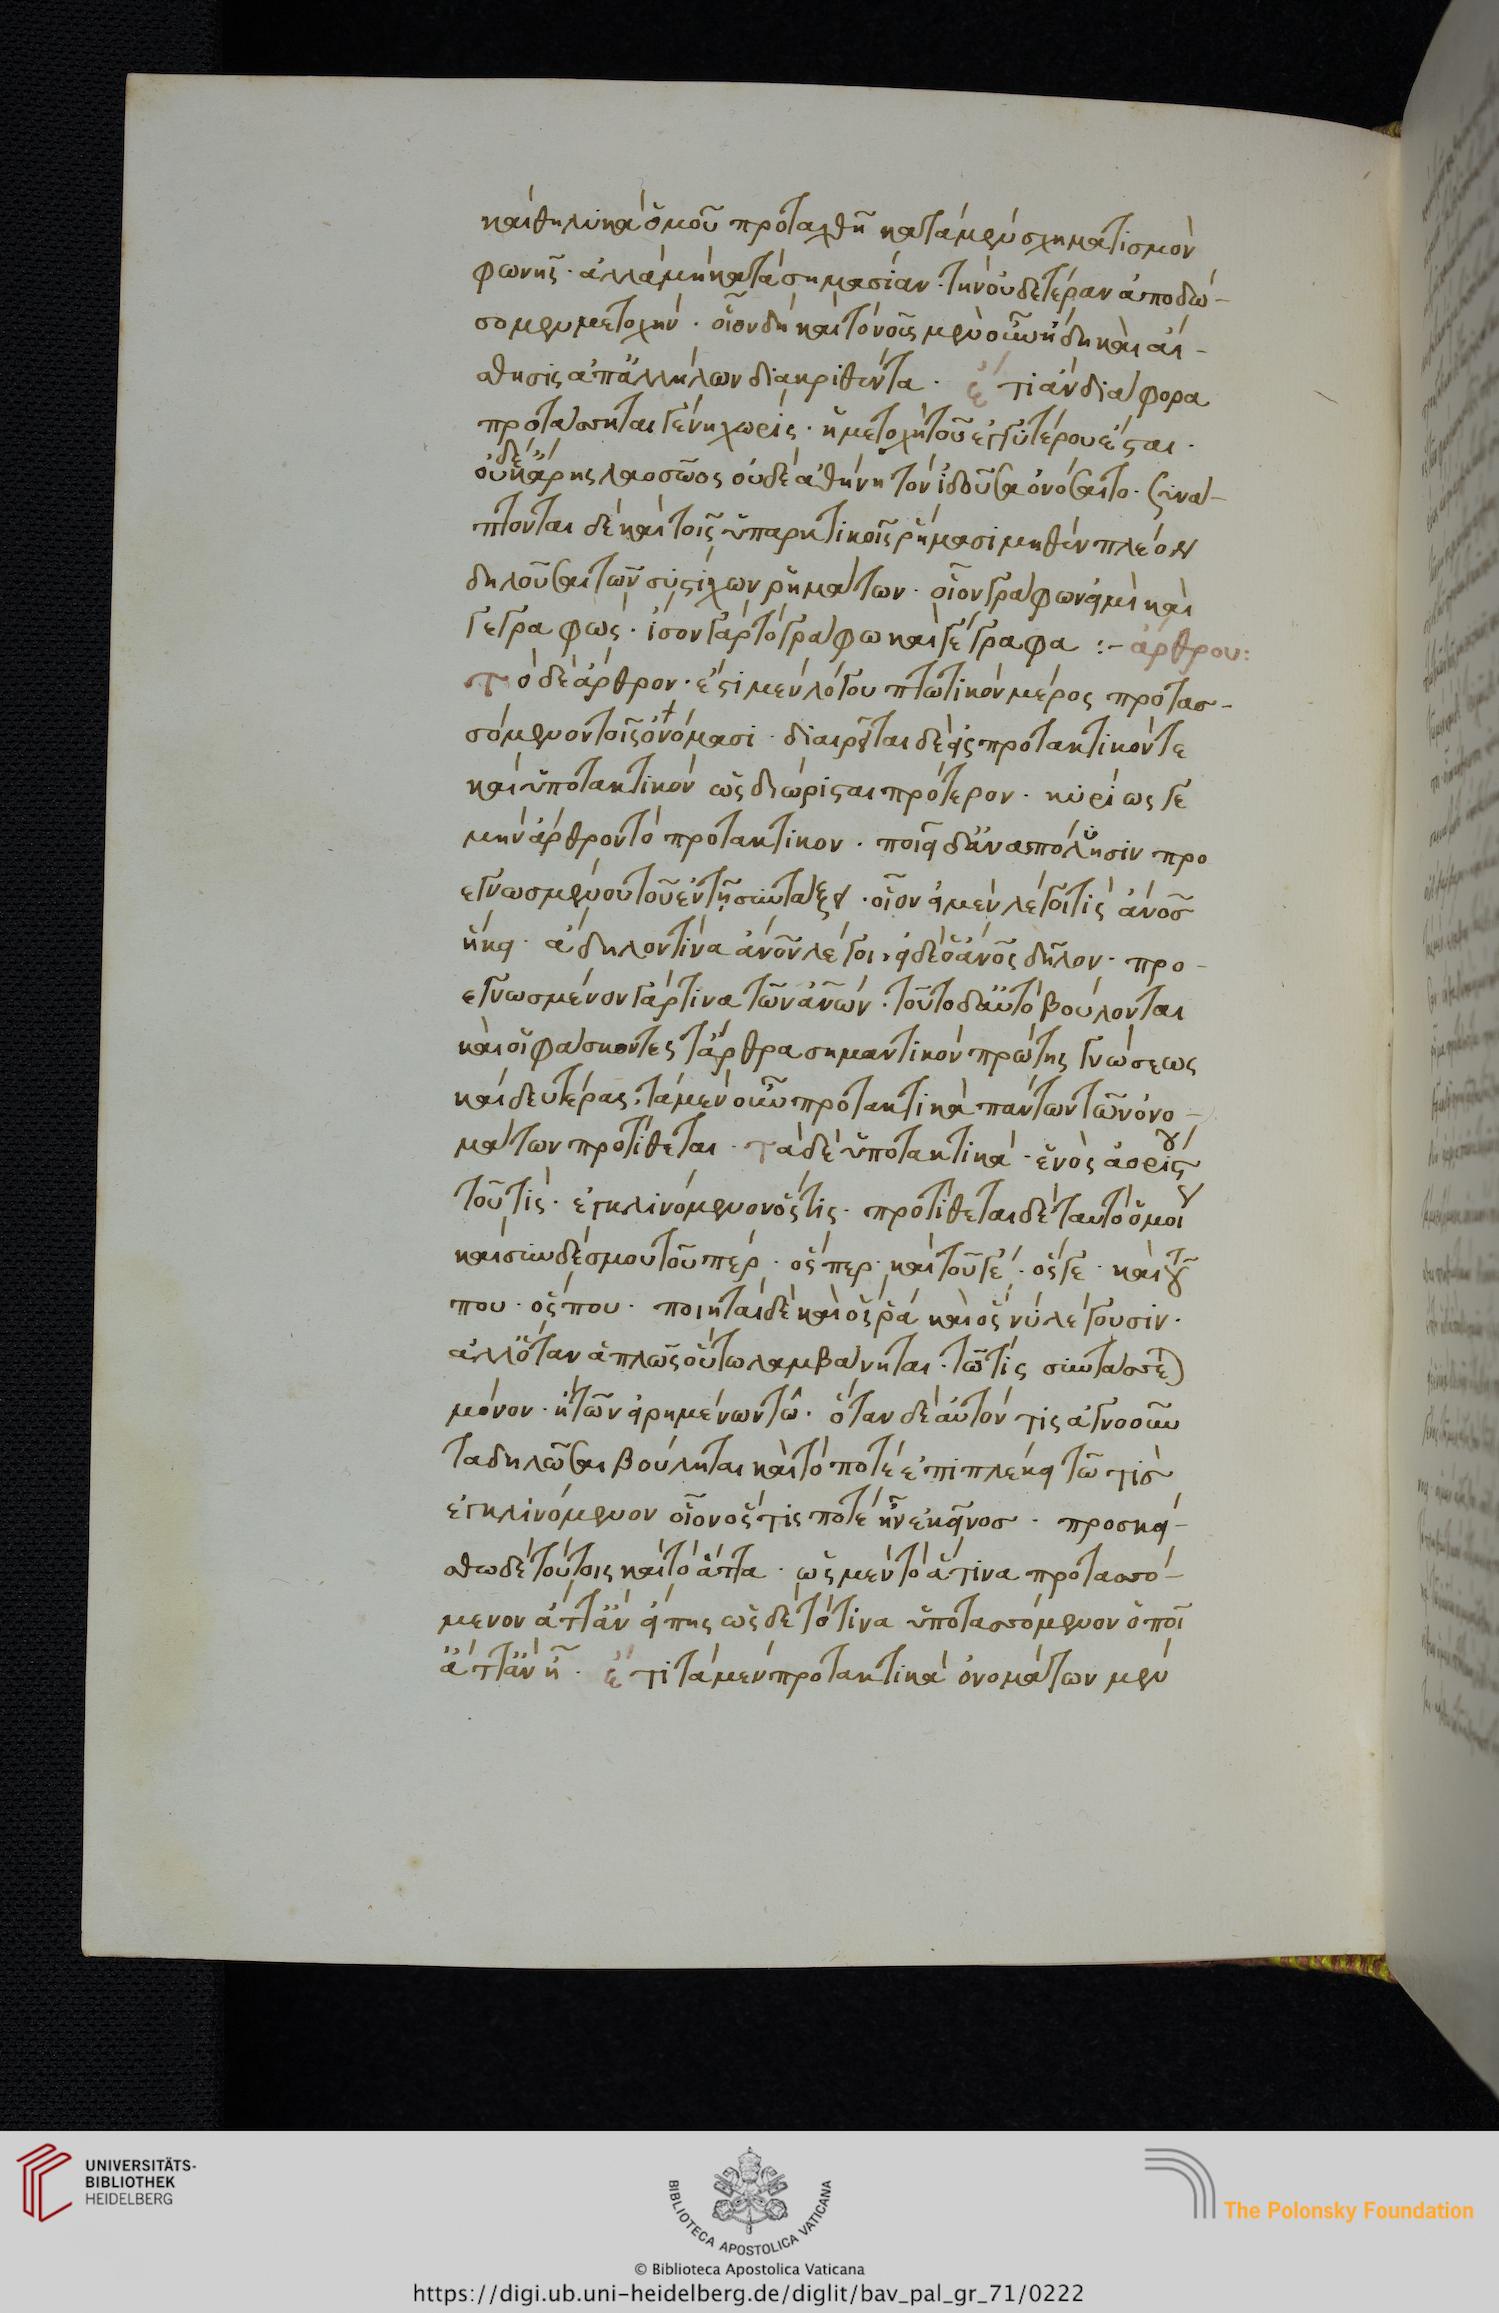 καὶ θηλυκὰ ὁμοῦ προταχθῆ κατὰ μὲν σχηματισμὸν
φωνῆς· ἀλλὰ μὴ κατὰ σημασίαν· τὴν οὐδετέραν ἀποδώ-
σομεν μετοχήν· οἷον δὴ καὶ τὸ νοῦς μὲν οὖν ἤδη καὶ αἴ-
σθησις ἀπ' ἀλλήλων διακριθέντα· ἔτι ἂν διάφορα
προτάσσηται γένη χωρίς· ἡ μετοχὴ τοῦ ἐγγυτέρου ἔσται·
οὐδέ κ' ἄρης λαοσσόος οὐδέ κ' ἀθήνη τόν γ' ἰδοῦσα ὀνόσαιτο· συνά-
πτονται δὲ καὶ τοῖς ὑπαρκτικοῖς ῥήμασι μηθὲν πλέον
δηλοῦσαι τῶν συστοίχων ῥημάτων· οἷον γράφων εἰμὶ καὶ
γεγραφώς· ἴσον γὰρ τὸ γράφω καὶ γέγραφα :- ἄρθρου:
τὸ δὲ ἄρθρον· ἔστι μὲν λόγου πτωτικὸν μέρος προτασ-
σόμενον τοῖς ὀνόμασι· διαιρεῖται δὲ εἰς προτακτικόν τε
καὶ ὑποτακτικὸν ὡς διώρισται πρότερον· κυρίως γε
μὴν ἄρθρον τὸ προτακτικόν· ποιεῖ δ' ἀναπόλησιν προ
εγνωσμένου τοῦ ἐν τῇ συντάξει· οἷον εἰ μὲν λέγοι τίς ἄνος
ἥκει· ἄδηλον τίνα ἄνον λέγοι· εἰ δὲ ὁ ἄνος δῆλον· προ-
εγνωσμένον γάρ τινα τῶν ἀνων· τοῦτο δ' αὐτὸ βούλονται
καὶ οἱ φάσκοντες τἄρθρα σημαντικὸν πρώτης γνώσεως
καὶ δευτέρας· τὰ μὲν οὖν προτακτικὰ πάντων τῶν ὀνο-
μάτων προτίθεται· τὰ δὲ ὑποτακτικὰ· ἑνὸς ἀορίστου
τοῦ τίς· ἐγκλινόμενον ὅστις· προτίθεται δὲ ταυτὸ ὁμοῦ
καὶ συνδέσμου τοῦ πέρ· ὅσπερ· καὶ τοῦ γέ· ὅσγε· καὶ τοῦ
που· ὅσπου· ποιηταὶ δὲ καὶ ὅς ῥα καὶ ὅς νύ λέγουσιν·
ἀλλ' ὅταν ἁπλῶς οὕτω λαμβάνηται· τῷ τίς συντάσσεται
μόνον· ἢ τῶν εἰρημένων τῳ· ὅταν δὲ αὐτόν τις ἀγνοοῦν
τα δηλῶσαι βούληται καὶ τὸ ποτὲ ἐπιπλέκει τῷ τὶς
ἐγκλινόμενον οἷον ὅστις ποτὲ ἦν ἐκεῖνος· προσκεί-
σθω δὲ τούτοις καὶ τὸ ἅττα· ὡς μὲν τὸ ἅτινα προτασσό-
μενον ἅττ' ἂν εἴπῃς ὡς δὲ τὸ τινα ὑποτασσόμενον ὁποῖ
ἄττ' ἂν ᾖ· ἔτι τὰ μὲν προτακτικὰ ὀνομάτων μὲν
UNIVERSITÄTS-
BIBLIOTHEK
HEIDELBERG
BIBLIOTECA APOSTOLICA VATICANA
The Polonsky Foundation
© Biblioteca Apostolica Vaticana
https://digi.ub.uni-heidelberg.de/diglit/bav_pal_gr_71/0222